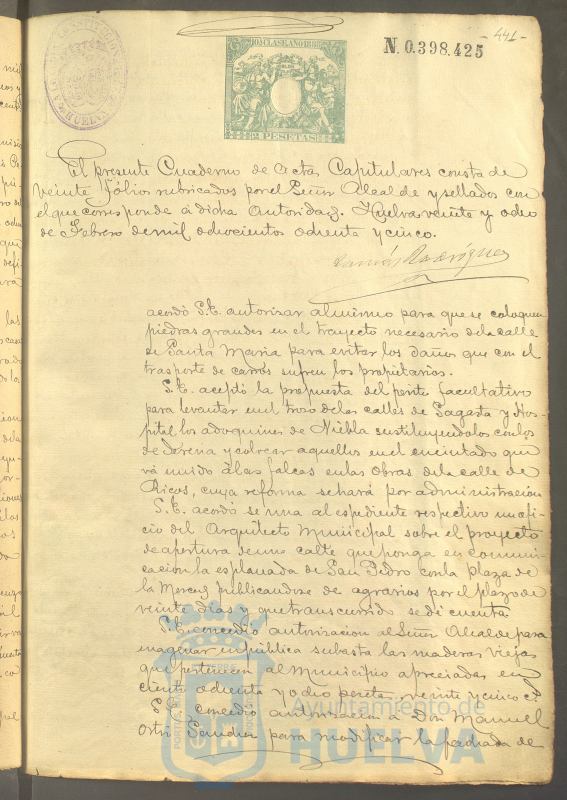 441-
N. 0.398.425
10ª CLASE AÑO 18
2 PESETAS
El presente Cuaderno de Actas Capitulares consta de
veinte folios rubricados por el Señor Alcalde y sellados con
el que corresponde á dicha Autoridad. Huelva veinte y ocho
de Febrero de mil ochocientos ochenta y cinco.
Ramón Rodríguez
acordó S.E. autorizar al mismo para que se coloquen
piedras grandes en el trayecto necesario de la calle
de Santa Maria para evitar los daños que con el
trasporte de carros sufren los propietarios.
S.E. aceptó la propuesta del perito facultativo
para levantar en el trozo de las calles de Sagasta y Hos-
pital los adoquines de Niebla sustituyendolos con los
de Gerena y colocar aquellos en el encintado que
vá unido á las falcas en las obras de la calle de
Ricos, cuya reforma se hará por administración
S.E. acordó se una al espediente respectivo un ofi-
cio del Arquitecto Municipal sobre el proyecto
de apertura de una calle que ponga en comuni-
cacion la esplanada de San Pedro con la Plaza de
la Merced publicandose de agravios por el plazo de
veinte dias y que transcurrido se dé cuenta.
S.E. concedió autorizacion al Señor Alcalde para
enagenar en pública subasta las maderas viejas
que pertenecen al Municipio apreciadas en
ciento ochenta y ocho pesetas veinte y cinco cs.
S.E. concedió autorización á Don Manuel
Ortiz Sanchez para modificar la fachada de
Ayuntamiento de
HUELVA